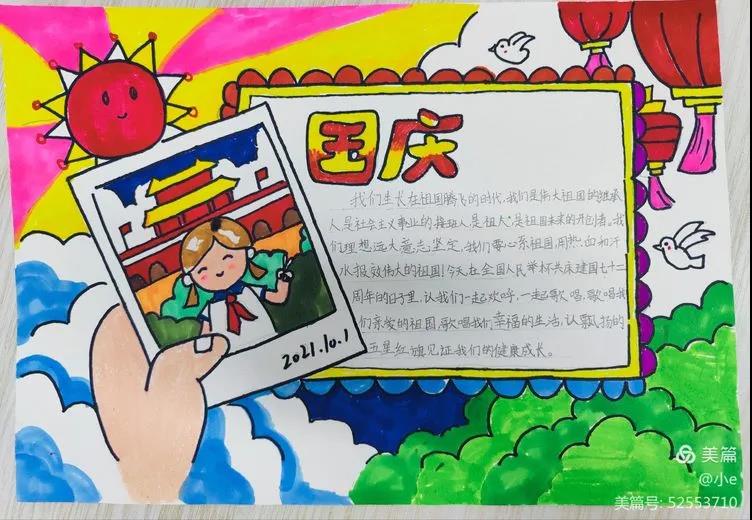 国庆
我们生长在祖国腾飞的时代,我们是伟大祖国的继承
人是社会主义事业的接班人是祖大"是祖国未来的开创者。我
们理想远大意志坚定,我们要心系祖国,用热血和汗
水报效伟大的祖国!今天在全国人民举杯共庆建国七十二
周年的日子里,让我们一起欢呼,一起歌唱,歌唱我
们亲爱的祖国,歌唱我们幸福的生活,让飘扬的
五星红旗见证我们的健康成长。
2021.10.1
美篇
@小e
美篇号: 52553710